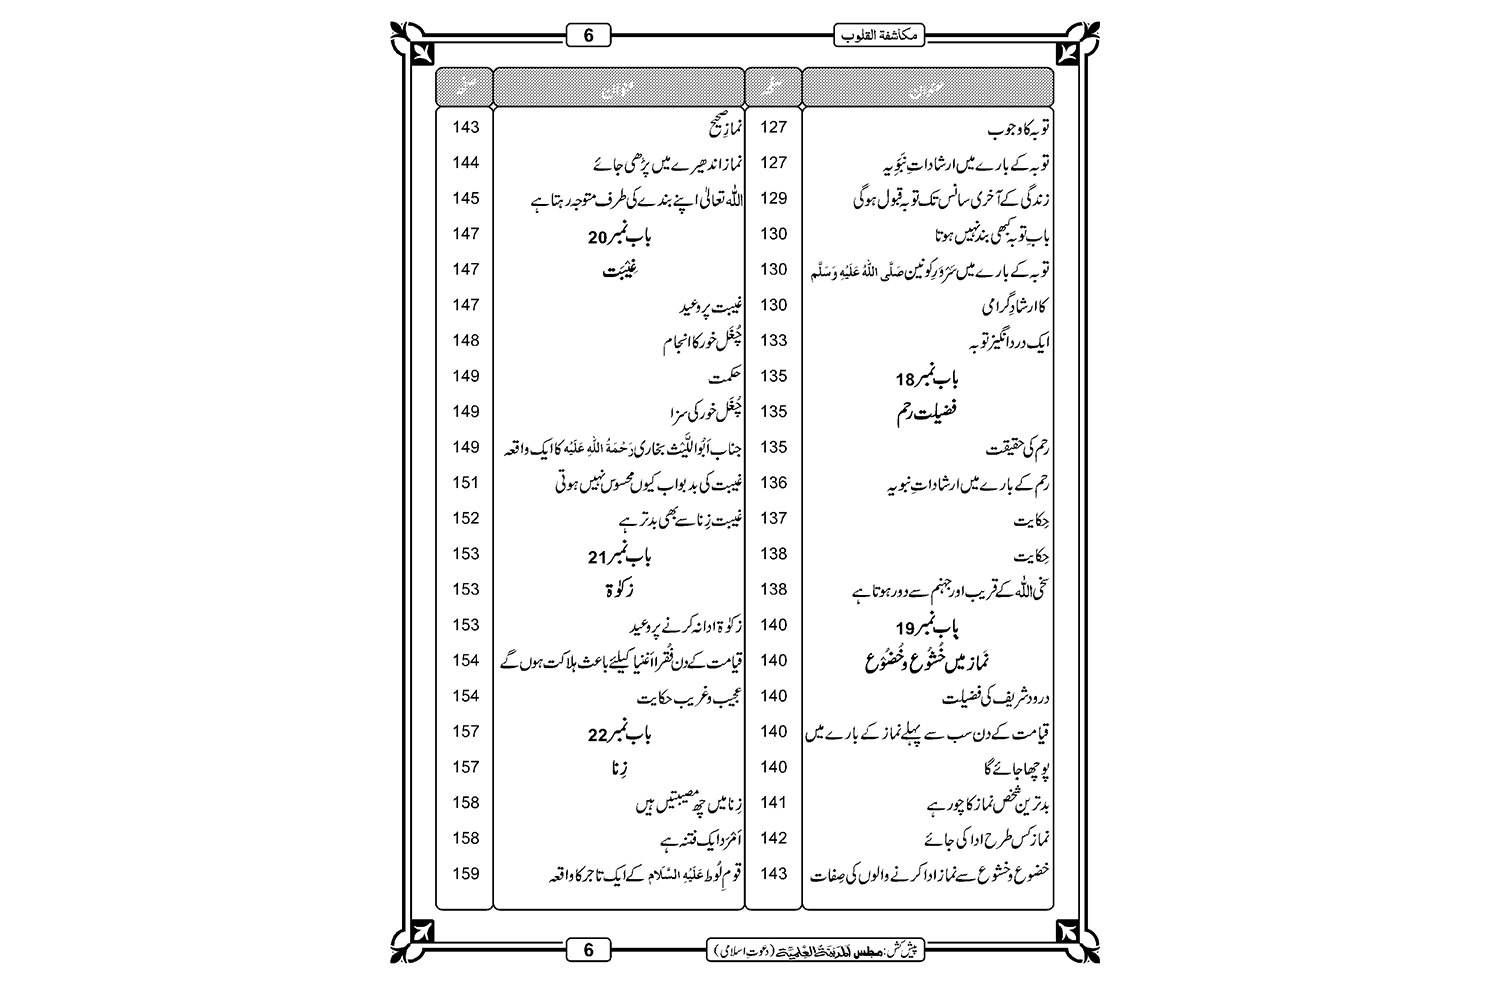 مکاشفۃ القلوب 6
عنوان صفحہ عنوان صفحہ
توبہ کا وجوب 127
توبہ کے بارے میں ارشاداتِ نَبَوِیہ 127
زندگی کے آخری سانس تک توبہ قبول ہوگی 129
بابِ توبہ کبھی بند نہیں ہوتا 130
توبہ کے بارے میں سَرْوَرِ کونین صَلَّی اللهُ عَلَیْهِ وَسَلَّم 130
کا ارشادِ گرامی 130
ایک درد انگیز توبہ 133
باب نمبر 18 135
فضیلت رحم 135
رحم کی حقیقت 135
رحم کے بارے میں ارشاداتِ نبویہ 136
حِکایت 137
حِکایت 138
سخی اللہ کے قریب اور جہنم سے دور ہوتا ہے 138
باب نمبر 19 140
نماز میں خُشُوْع و خُضُوْع 140
درود شریف کی فضیلت 140
قیامت کے دن سب سے پہلے نماز کے بارے میں 140
پوچھا جائے گا 140
بدترین شخص نماز کا چور ہے 141
نماز کس طرح ادا کی جائے 142
خضوع و خشوع سے نماز ادا کرنے والوں کی صِفات 143
نمازِ صحیح 143
نماز اندھیرے میں پڑھی جائے 144
اللہ تعالیٰ اپنے بندے کی طرف متوجہ رہتا ہے 145
باب نمبر 20 147
غِیْبَت 147
غیبت پر وعید 147
چُغَل خور کا انجام 148
حکمت 149
چُغَل خور کی سزا 149
جناب اَبُو اللَّیْث بخاری رَحْمَةُ اللهِ عَلَیْه کا ایک واقعہ 149
غیبت کی بدبو اب کیوں محسوس نہیں ہوتی 151
غیبت زِنا سے بھی بدتر ہے 152
باب نمبر 21 153
زکوٰۃ 153
زکوٰۃ ادا نہ کرنے پر وعید 153
قیامت کے دن فُقَرا اَغنیا کیلئے باعث ہلاکت ہوں گے 154
عجیب و غریب حکایت 154
باب نمبر 22 157
زِنا 157
زِنا میں چھ مصیبتیں ہیں 158
اَمْرَد ایک فتنہ ہے 158
قومِ لُوط عَلَیْهِ السَّلَام کے ایک تاجر کا واقعہ 159
پیش کش: مجلس المدینۃ العلمیۃ (دعوتِ اسلامی) 6